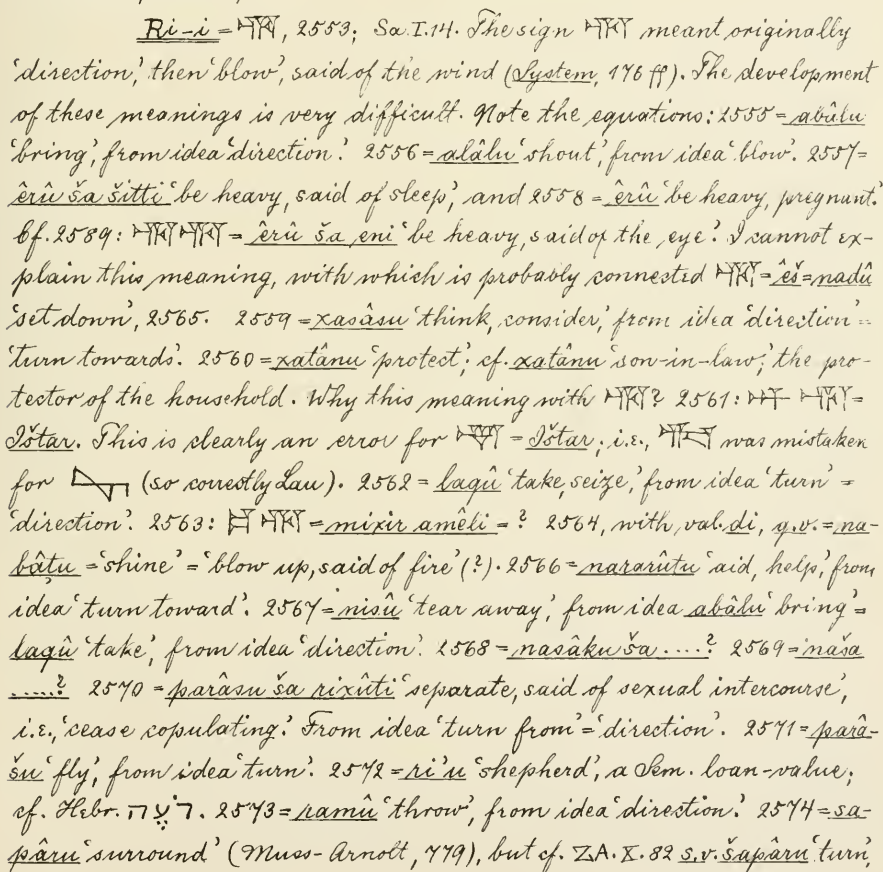 Ri-i = 𒊑, 2553; Sa.I.14. The sign 𒊑 meant originally
'direction', then 'blow', said of the wind (System, 176 ff). The development
of these meanings is very difficult. Note the equations: 2555 = abâlu
'bring', from idea 'direction'. 2556 = alâlu 'shout', from idea 'blow'. 2557 =
êrû ša šitti 'be heavy, said of sleep', and 2558 = êrû 'be heavy, pregnant.'
Cf. 2589: 𒊑𒊑 = êrû ša eni 'be heavy, said of the eye'. I cannot ex-
plain this meaning, with which is probably connected 𒊑 = êš = nadû
'set down', 2565. 2559 = xasâsu 'think, consider', from idea 'direction' =
'turn towards'. 2560 = xatânu 'protect'; cf. xatânu 'son-in-law', the pro-
tector of the household. Why this meaning with 𒊑? 2561: 𒀭 𒊑 =
Ištar. This is clearly an error for = Ištar; i.e., was mistaken
for (so correctly Lau). 2562 = laqû 'take, seize', from idea 'turn' =
'direction'. 2563: 𒊑 = mixir amêli = ? 2564, with val. di, q.v. = na-
bâṭu = 'shine' = 'blow up, said of fire' (?). 2566 = nararûtu 'aid, help', from
idea 'turn toward'. 2567 = nisû 'tear away', from idea abâlu 'bring' =
laqû 'take', from idea 'direction'. 2568 = nasâku ša ....? 2569 = naša
.....? 2570 = parâsu ša rixûti 'separate, said of sexual intercourse',
i.e., 'cease copulating'. From idea 'turn from' = 'direction'. 2571 = parâ-
šu 'fly', from idea 'turn'. 2572 = ri'u 'shepherd', a Sem. loan-value;
cf. Hebr. רֹעֶה. 2573 = ramû 'throw', from idea 'direction'. 2574 = sa-
pâru 'surround' (Muss-Arnolt, 779), but cf. ZA. X. 82 s.v. šapâru 'turn,